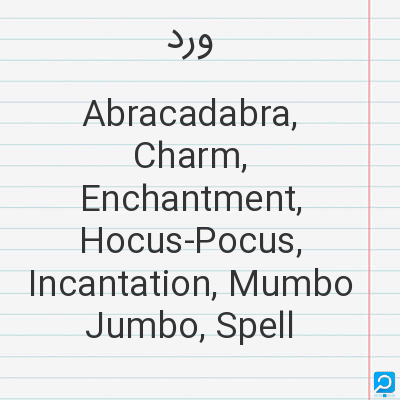 ورد
Abracadabra,
Charm,
Enchantment,
Hocus-Pocus,
Incantation, Mumbo
Jumbo, Spell